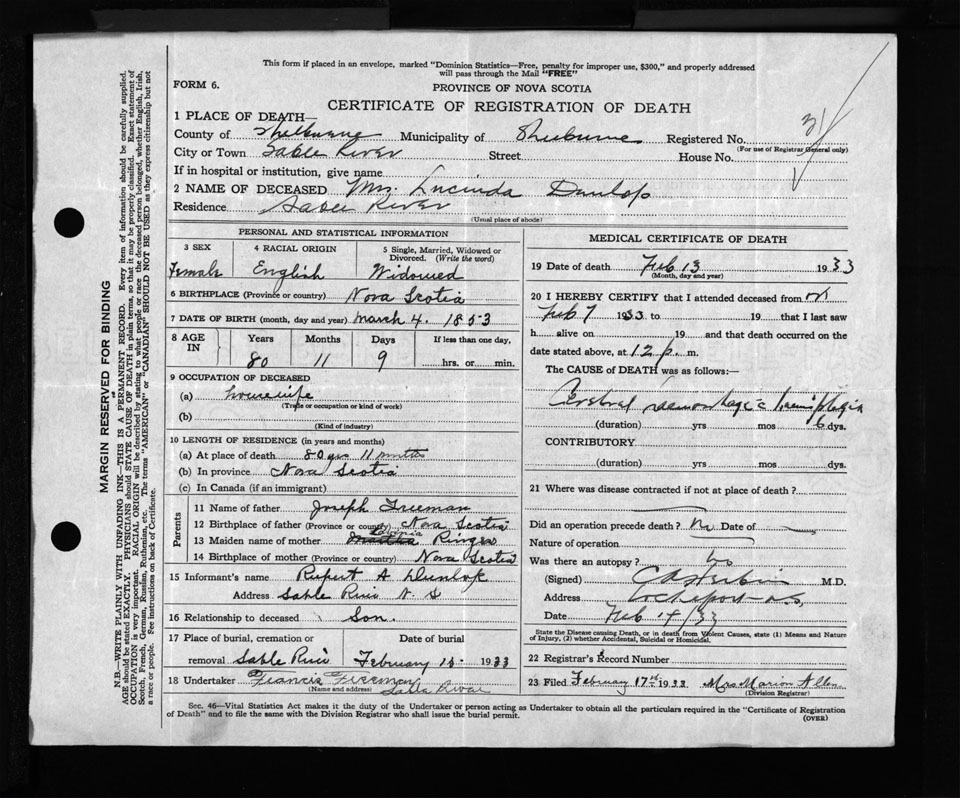 This form if placed in an envelope, marked "Dominion Statistics—Free, penalty for improper use, $300," and properly addressed
will pass through the Mail "FREE"
FORM 6.
PROVINCE OF NOVA SCOTIA
CERTIFICATE OF REGISTRATION OF DEATH
1 PLACE OF DEATH—
County of Shelburne Municipality of Shelburne Registered No.
(For use of Registrar General only)
City or Town Sable River Street House No.
If in hospital or institution, give name
2 NAME OF DECEASED Mrs. Lucinda Dunlop
Residence Sable River
(Usual place of abode)
PERSONAL AND STATISTICAL INFORMATION
3 SEX 4 RACIAL ORIGIN 5 Single, Married, Widowed or Divorced. (Write the word)
Female English Widowed
6 BIRTHPLACE (Province or country) Nova Scotia
7 DATE OF BIRTH (month, day and year) March 4. 1853
8 AGE IN Years Months Days If less than one day,
80 11 9 hrs. or min.
9 OCCUPATION OF DECEASED
(a) housewife
(Trade or occupation or kind of work)
(b)
(Kind of industry)
10 LENGTH OF RESIDENCE (in years and months)
(a) At place of death 80 yrs 11 months
(b) In province Nova Scotia
(c) In Canada (if an immigrant)
Parents
11 Name of father Joseph Freeman
12 Birthplace of father (Province or country) Nova Scotia
13 Maiden name of mother Ringer
14 Birthplace of mother (Province or country) Nova Scotia
15 Informant's name Rupert A Dunlop
Address Sable River N. S
16 Relationship to deceased Son.
17 Place of burial, cremation or removal Sable River
Date of burial February 15 1933
18 Undertaker Francis Freeman
(Name and address) Sable River
MEDICAL CERTIFICATE OF DEATH
19 Date of death Feb 13 1933
(Month, day and year)
20 I HEREBY CERTIFY that I attended deceased from
Feb 7 1933 to 19 that I last saw
h alive on 19 and that death occurred on the
date stated above, at 12 p. m.
The CAUSE of DEATH was as follows:—
Cerebral haemorrhage c hemiplegia
(duration) yrs mos 6 dys.
CONTRIBUTORY
(duration) yrs mos dys.
21 Where was disease contracted if not at place of death?
Did an operation precede death? No Date of
Nature of operation
Was there an autopsy? no
(Signed) M.D.
Address Lockeport N.S.
Date Feb 14/33
State the Disease causing Death, or in death from Violent Causes, state (1) Means and Nature
of Injury, (2) whether Accidental, Suicidal or Homicidal.
22 Registrar's Record Number
23 Filed February 17th 1933 Mrs Marion Allen
(Division Registrar)
Sec. 46—Vital Statistics Act makes it the duty of the Undertaker or person acting as Undertaker to obtain all the particulars required in the "Certificate of Registration
of Death" and to file the same with the Division Registrar who shall issue the burial permit.
(OVER)
MARGIN RESERVED FOR BINDING
N.B.—WRITE PLAINLY WITH UNFADING INK—THIS IS A PERMANENT RECORD. Every item of information should be carefully supplied.
AGE should be stated EXACTLY. PHYSICIANS should STATE CAUSE OF DEATH in plain terms, so that it may be properly classified. Exact statement of
OCCUPATION is very important. RACIAL ORIGIN will be described by stating to what people or race the deceased person belonged, whether English, Irish,
Scotch, French, German, Russian, Ruthenian, etc. The terms "AMERICAN" or "CANADIAN" SHOULD NOT BE USED as they express citizenship but not
a race or people. See instructions on back of Certificate.